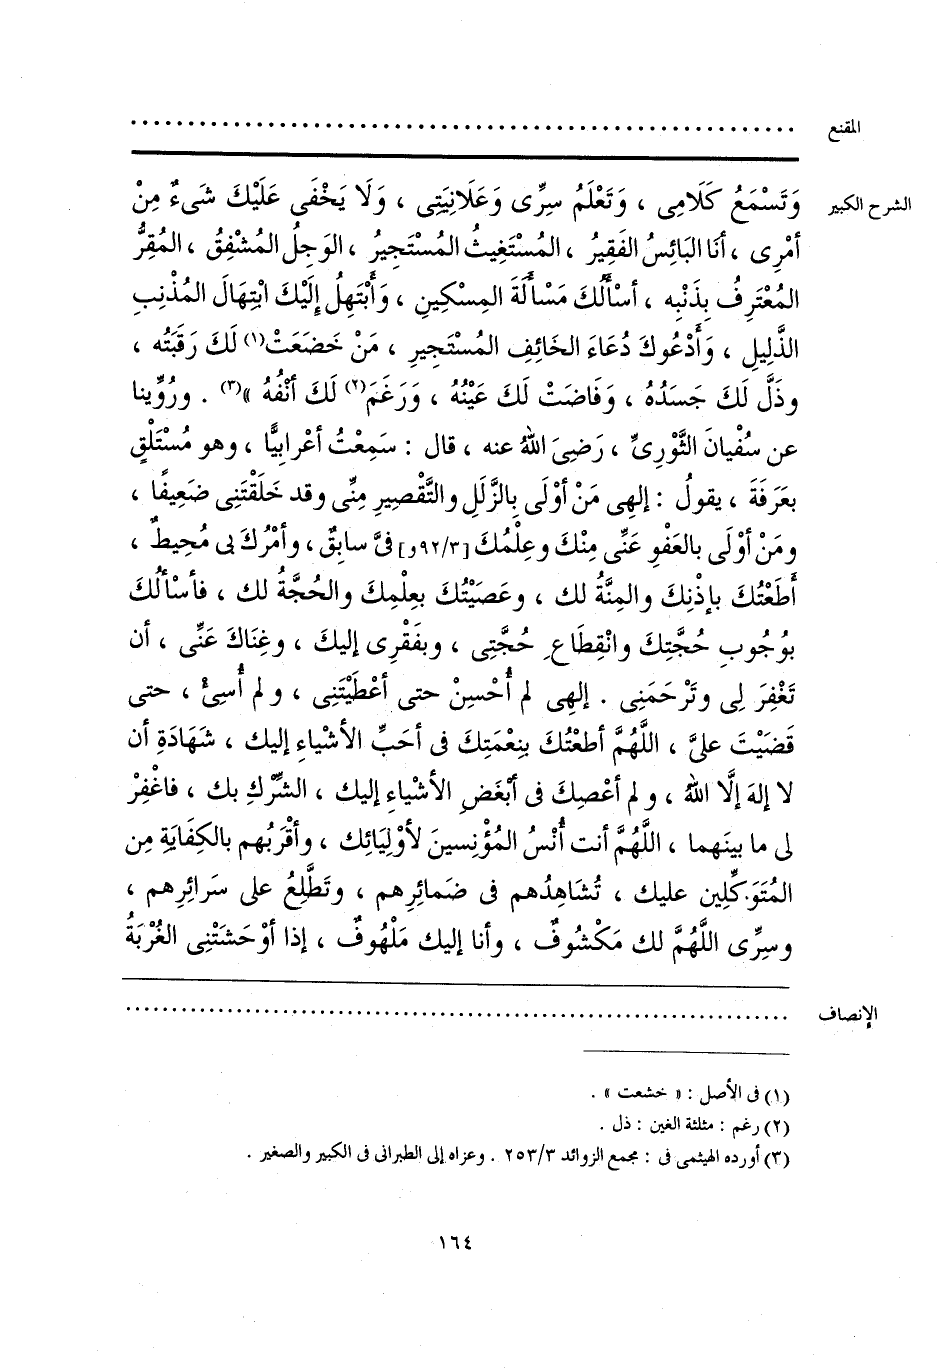 المقنع ............................................................
الشرح الكبير وَتَسْمَعُ كَلَامِى ، وَتَعْلَمُ سِرِّى وَعَلَانِيَتِى ، وَلَا يَخْفَى عَلَيْكَ شَىءٌ مِنْ
أمْرِى ، أنَا البَائِسُ الفَقِيرُ ، المُسْتَغِيثُ المُسْتَجِيرُ ، الوَجِلُ المُشْفِقُ ، المُقِرُّ
المُعْتَرِفُ بِذَنْبِه ، أسْأَلُكَ مَسْأَلَةَ المِسْكِينِ ، وَأَبْتَهِلُ إلَيْكَ ابْتِهَالَ المُذْنِبِ
الذَّلِيلِ ، وَأَدْعُوكَ دُعَاءَ الخَائِفِ المُسْتَجِيرِ ، مَنْ خَضَعَتْ(١) لَكَ رَقَبَتُه ،
وذَلَّ لَكَ جَسَدُهُ ، وَفَاضَتْ لَكَ عَيْنُهُ ، وَرَغَمَ(٢) لَكَ أنْفُهُ »(٣) . ورُوِّينا
عن سُفْيانَ الثَّوْرِىِّ ، رَضِىَ اللهُ عنه ، قال : سَمِعْتُ أعْرابِيًّا ، وهو مُسْتَلْقٍ
بعَرَفَةَ ، يقولُ : إلهِى مَنْ أوْلَى بالزَّلَلِ والتَّقْصِيرِ مِنِّى وقد خَلَقْتَنِى ضَعِيفًا ،
ومَنْ أوْلَى بالعَفْوِ عَنِّى مِنْكَ وعِلْمُكَ [٩٢/٣و] فىَّ سابِقٌ ، وأمْرُكَ بى مُحِيطٌ ،
أَطَعْتُكَ بإذْنِكَ والمِنَّةُ لك ، وعَصَيْتُكَ بعِلْمِكَ والحُجَّةُ لك ، فأسْألُكَ
بوُجُوبِ حُجَّتِكَ وانْقِطَاعِ حُجَّتِى ، وبفَقْرِى إليكَ ، وغِنَاكَ عَنِّى ، أن
تَغْفِرَ لِى وتَرْحَمَنِى . إلهِى لم أُحْسِنْ حتى أعْطَيْتَنِى ، ولم أُسِئْ ، حتى
قَضَيْتَ علىَّ ، اللَّهُمَّ أطَعْتُكَ بنِعْمَتِكَ فى أحَبِّ الأشْياءِ إليك ، شَهَادَةِ أن
لا إلهَ إلَّا اللهُ ، ولم أعْصِكَ فى أبْغَضِ الأشْياءِ إليك ، الشِّرْكِ بك ، فاغْفِرْ
لى ما بينَهما ، اللَّهُمَّ أنت أُنْسُ المُؤْنِسينَ لأوْلِيَائِك ، وأقْرَبُهم بالكِفَايَةِ مِن
المُتَوَكِّلِين عليك ، تُشَاهِدُهم فى ضَمائِرِهم ، وتَطَّلِعُ على سَرائِرِهم ،
وسِرِّى اللَّهُمَّ لك مَكْشُوفٌ ، وأنا إليك مَلْهُوفٌ ، إذا أوْحَشَتْنِى الغُرْبَةُ
الإنصاف ............................................................
(١) فى الأصل : « خشعت » .
(٢) رغم : مثلثة الغين : ذل .
(٣) أورده الهيثمى فى : مجمع الزوائد ٢٥٣/٣ . وعزاه إلى الطبرانى فى الكبير والصغير .
١٦٤